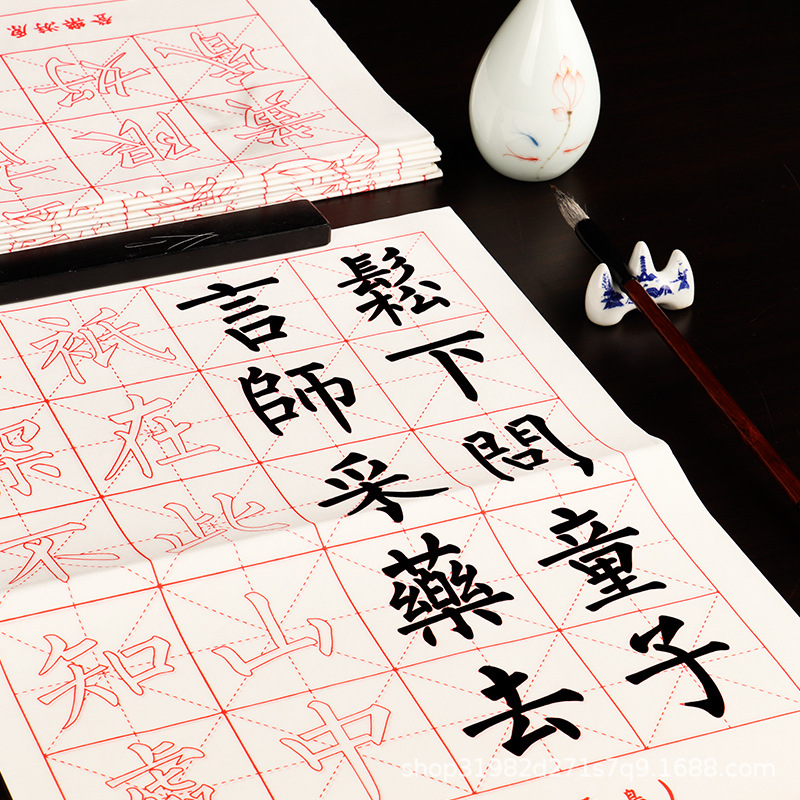 登樂游原
限好
鬆下問童子
言師采藥去
祇在此山中
深不知處
shop31982d271s7q9.1688.com